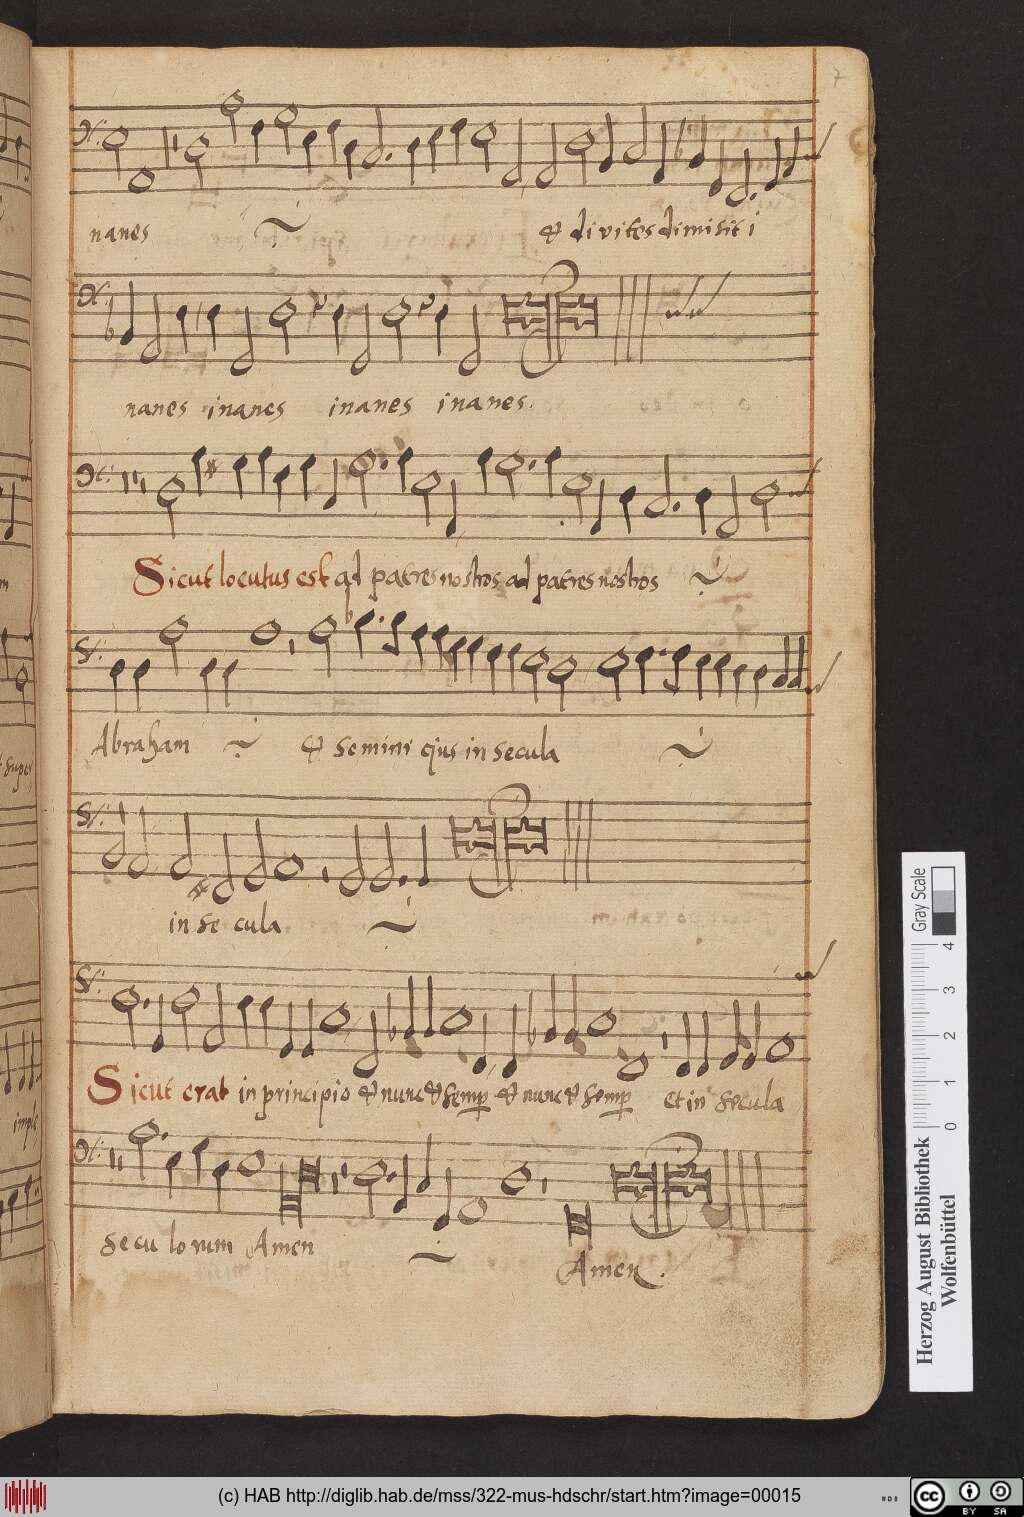 7
nanes et divites dimisit i
nanes inanes inanes inanes.
Sicut locutus est ad patres nostros ad patres nostros
Abraham et semini ejus in secula
in se cula
Sicut erat in principio et nunc et semp et nunc et semp et in secula
se cu lo rum Amen
Amen.
super
imple
Gray Scale
0 1 2 3 4
Herzog August Bibliothek
Wolfenbüttel
(c) HAB http://diglib.hab.de/mss/322-mus-hdschr/start.htm?image=00015
cc BY SA